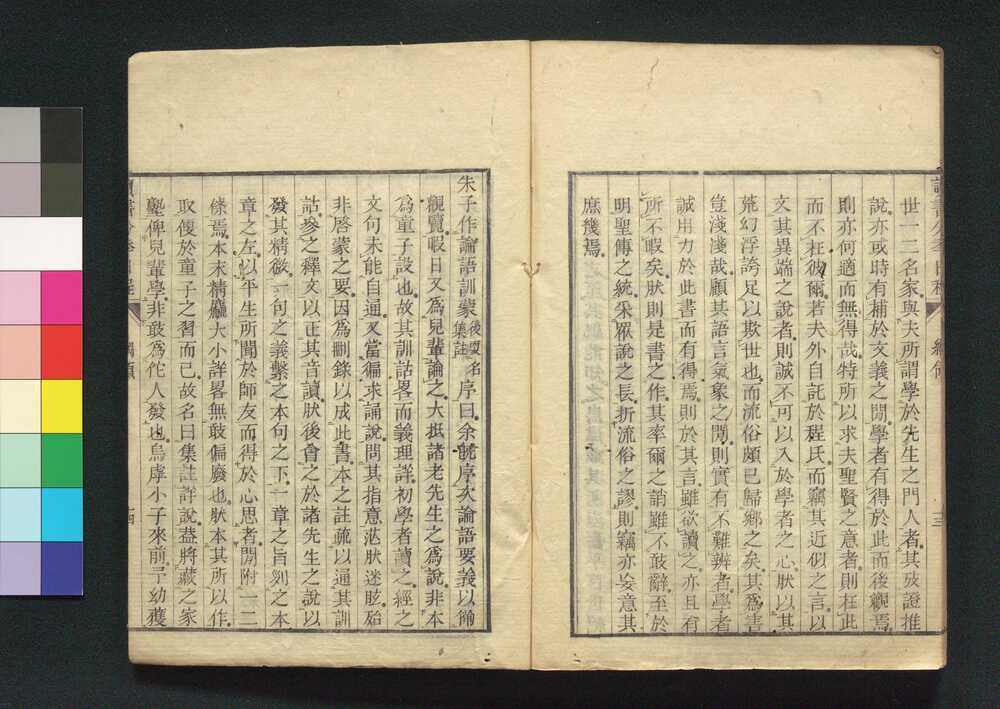 世一二名家與夫所謂學於先生之門人者其攷證推
說亦或時有補於文義之閒學者有得於此而後觀焉
則亦何適而無得哉特所以求夫聖賢之意者則在此
而不在彼爾若夫外自託於程氏而竊其近佀之言以
文其異端之說者則誠不可以入於學者之心肰以其
荒幻浮誇足以欺世也而流俗頗已歸鄉之矣其爲害
豈淺淺哉顧其語言氣象之閒則實有不難辨者學者
誠用力於此書而有得焉則於其言雖欲讀之亦且有
所不暇矣肰則是書之作其率爾之誚雖不敢辭至於
明聖傳之統采眾說之長折流俗之謬則竊亦妄意其
庶幾焉
朱子作論語訓蒙後更名集註序曰余旣序次論語要義以僃
觀覽暇日又爲兒輩論之大抵諸老先生之爲說非本
爲童子設也故其訓詁畧而義理詳初學者讀之經之
文句未能自通又當徧求誦說問其指意茫肰迷眩殆
非啓蒙之要因爲刪錄以成此書本之註疏以通其訓
詁參之釋文以正其音讀肰後會之於諸先生之說以
發其精微一句之義繫之本句之下一章之旨列之本
章之左又以平生所聞於師友而得於心思者閒附一二
條焉本末精麤大小詳畧無敢偏廢也肰本其所以作
取便於童子之習而已故名曰集註詳說葢將藏之家
塾俾兒輩學非敢爲佗人發也烏虖小子來前予幼獲
十三
十四